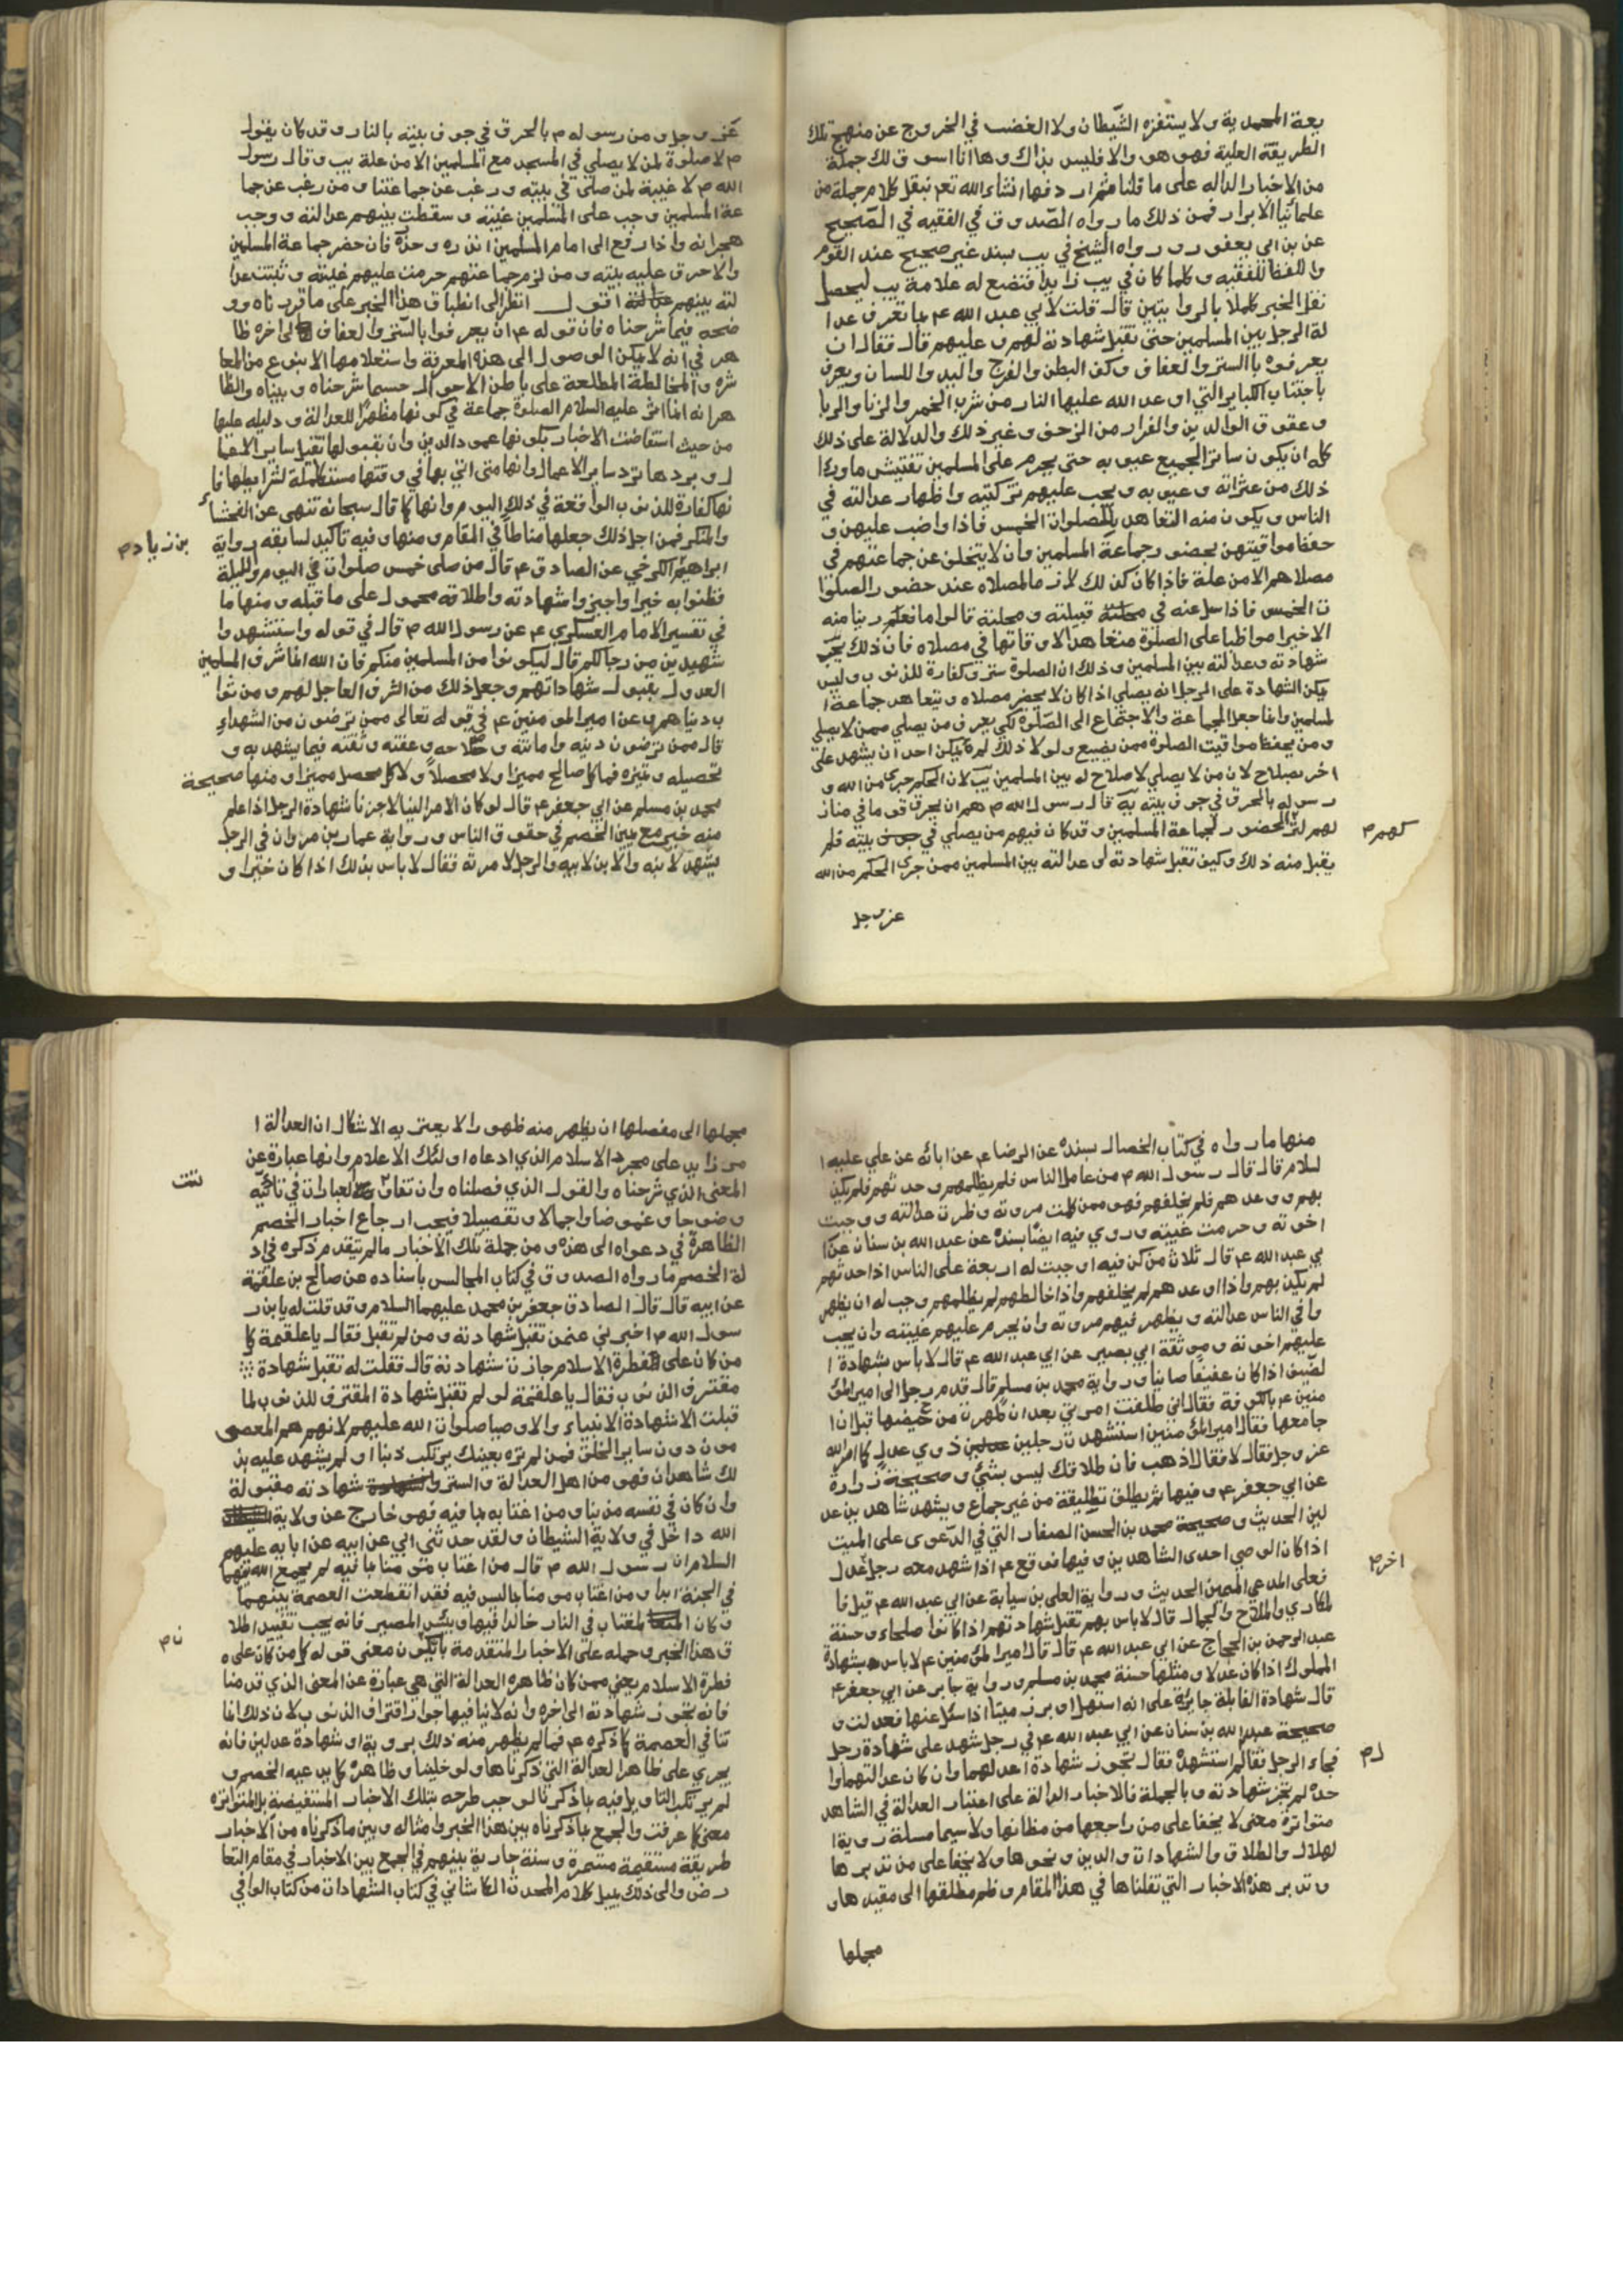 يعة المحمدية ولا يستفزه الشيطان ولا الغضب في الخروج عن منهج تلك
الطريقة العلية فهو هو والا فليس بذاك وها انا اسوق لك جملة
من الاخبار الداله على ما قلنا ثم اردفها انشاء الله تعم بنقل كلام جملة من
علمائنا الابرار فمن ذلك ما رواه الصدوق في الفقيه في الصحيح
عن بن ابي يعفور ورواه الشيخ في يب بسند غير صحيح عند القوم
واللفظ للفقيه وكلما كان في يب زايدا فنضع له علامة يب ليحصل
نقل الخبر كملا بالروايتين قال قلت لابي عبد الله ع بما تعرف عدا
لة الرجل بين المسلمين حتى تقبل شهادته لهم وعليهم قال فقال ان
يعرفوه بالستر والعفاف وكف البطن والفرج واليد واللسان ويعرف
باجتناب الكباير التي اوعد الله عليها النار من شرب الخمر والزنا والربا
وعقوق الوالدين والفرار من الزحف وغير ذلك والدلالة على ذلك
كله ان يكون ساتر الجميع عيوبه حتى يحرم على المسلمين تفتيش ما ورا
ذلك من عثراته وعيوبه ويجب عليهم تزكيته واظهار عدالته في
الناس ويكون منه التعاهد للصلوات الخمس فاذا واضب عليهن و
حفظ مواقيتهن بحضور جماعة المسلمين وان لا يتخلف عن جماعتهم في
مصلاهم الا من علة فاذا كان كذلك لازما لمصلاه عند حضور الصلوا
ت الخمس فاذا سل عنه في قبيلته ومحلته قالوا ما نعلم رينا منه
الا خيرا مواظبا على الصلوة متعاهدا لاوقاتها في مصلاه فان ذلك يجيز
شهادته وعدالته بين المسلمين وذلك ان الصلوة ستر وكفارة للذنوب وليس
يمكن الشهادة على الرجل انه يصلي اذا كان لا يحضر مصلاه ويتعاهد جماعة ا
لمسلمين وانما جعل الجماعة والاجتماع الى الصلوة لكي يعرف من يصلي ممن لا يصلي
ومن يحفظ مواقيت الصلوة ممن يضيع ولولا ذلك لم يمكن احد ان يشهد على
اخر بصلاح لان من لا يصلي لا صلاح له بين المسلمين يب لان الحكم جرى من الله و
رسوله بالحرق في جوف بيته يه قال رسول الله ص هم ان يحرق قوما في مناز
لهم لترك الحضور لجماعة المسلمين وقد كان فيهم من يصلي في بيته فلم
كهم م
يقبل منه ذلك وكيف تقبل شهادته او عدالته بين المسلمين ممن جرى الحكم من الله
عز وجل
عز وجل ومن رسوله ص بالحرق في جوف بيته بالنار وقد كان يقول
ص لا صلوة لمن لا يصلي في المسجد مع المسلمين الا من علة يب وقال رسول
الله ص لا غيبة لمن صلى في بيته ورغب عن جماعتنا ومن رغب عن جما
عة المسلمين وجب على المسلمين غيبته وسقطت بينهم عدالته ووجب
هجرانه واذا رفع الى امام المسلمين انذره وحذره فان حضر جماعة المسلمين
والا حرق عليه بيته ومن لزم جماعتهم حرمت عليهم غيبته وثبتت عدا
لته بينهم اقول انظر الى انطباق هذا الخبر على ما قررناه وو
ضحه فيما شرحناه فان قوله ع ان يعرفوا بالستر والعفاف الى اخره ظا
هر في انه لا يمكن الوصول الى هذه المعرفة واستعلامها الا بنوع من المعا
شره والمخالطة المطلعة على باطن الاحوال حسبما شرحناه وبيناه والظا
هر انه انما اثر عليه السلام الصلوة جماعة في كونها مظهرا للعدالة ودليله عليها
من حيث استفاضت الاخبار بكونها عمود الدين وان بقبولها تقبل ساير الاعما
ل وبردها ترد ساير الاعمال وانها متى اتي بها في وقتها مستكملة لشرايطها فا
نها كفارة للذنوب الواقعة في ذلك اليوم وانها كما قال سبحانه تنهى عن الفحشاء
والمنكر فمن اجل ذلك جعلها مناطا في المقام ومنها وفيه تاكيد لسابقه رواية
بن زياد م
ابراهيم الكرخي عن الصادق ع قال من صلى خمس صلوات في اليوم والليلة
فظنوا به خيرا واجيزوا شهادته واطلاقه محمول على ما قبله ومنها ما
في تفسير الامام العسكري ع عن رسول الله ص قال في قوله واستشهدوا
شهيدين من رجالكم قال ليكونوا من المسلمين منكم فان الله انما شرف المسلمين
العدول بقبول شهاداتهم وجعل ذلك من الشرف العاجل لهم ومن ثوا
ب دنياهم وعن امير المومنين ع في قوله تعالى ممن ترضون من الشهداء
قال ممن ترضون دينه وامانته وصلاحه وعفته وثقته فيما يشهد به و
تحصيله وتميزه فما كل صالح مميزا ولا محصلا ولا كل محصل مميزا ومنها صحيحة
محمد بن مسلم عن ابي جعفر ع قال لو كان الامر الينا لاجزنا شهادة الرجل اذا علم
منه خير مع يمين الخصم في حقوق الناس ورواية عمار بن مروان في الرجل
يشهد لابنه والابن لابيه والرجل لامرته فقال لا باس بذلك اذا كان خيرا و
منها ما رواه في كتاب الخصال بسنده عن الرضا ع عن ابائه عن علي عليه ا
لسلام قال قال رسول الله ص من عامل الناس فلم يظلمهم وحدثهم فلم يكذ
بهم ووعدهم فلم يخلفهم فهو ممن كملت مروته وظهرت عدالته ووجبت
اخوته وحرمت غيبته وروي فيه ايضا بسنده عن عبد الله بن سنان عن ا
بي عبد الله ع قال ثلاث من كن فيه اوجبت له اربعة على الناس اذا حدثهم
لم يكذبهم واذا وعدهم لم يخلفهم واذا خالطهم لم يظلمهم وجب له ان يظهر
وا في الناس عدالته ويظهر فيهم مروته وان يحرم عليهم غيبته وان يجب
عليهم اخوته وموثقة ابي بصير عن ابي عبد الله ع قال لا باس بشهادة ا
لضيف اذا كان عفيفا صاينا ورواية محمد بن مسلم قال قدم رجل الى امير المؤ
منين ع بالكوفة فقال اني طلقت امرتي بعد ان طهرت من حيضها قبل ان ا
جامعها فقال امير المؤمنين استشهدت رجلين ذوي عدل كما امر الله
عز وجل فقال لا فقال اذهب فان طلاقك ليس بشئ وصحيحة زرارة
عن ابي جعفر ع وفيها ثم يطلق تطليقة من غير جماع ويشهد شاهدين عد
لين الحديث وصحيحة محمد بن الحسن الصفار التي في الدعوى على الميت
اذا كان الوصي احدى الشاهدين وفيها فوقع ع اذا شهد معه رجل عدل
اخر م
فعلى المدعي اليمين الحديث ورواية العلى بن سيابة عن ابي عبد الله ع قيل فا
لمكاري والملاح والجمال قال لا باس بهم تقبل شهادتهم اذا كانوا صلحاء وحسنة
عبد الرحمن بن الحجاج عن ابي عبد الله ع قال قال امير المؤمنين ع لا باس بشهادة
المملوك اذا كان عدلا ومثلها حسنة محمد بن مسلم ورواية جابر عن ابي جعفر ع
قال شهادة القابلة جايزة على انه استهل او برز ميتا اذا سئل عنها فعدلت و
صحيحة عبد الله بن سنان عن ابي عبد الله ع في رجل شهد على شهادة رجل
فجاء الرجل فقال لم استشهده فقال تجوز شهادة اعدلهما وان كان عدالتهما وا
لم م
حده لم تجز شهادته وبالجملة فالاخبار الدالة على اعتبار العدالة في الشاهد
متواترة معنى لا يخفا على من راجعها من مظانها ولا سيما مسلة روية ا
لهلال والطلاق والشهادات والدين ونحوها ولا يخفا على من تدبرها
وتدبر هذه الاخبار التي نقلناها في هذا المقام وظم مطلقها الى مقيدها و
مجملها
مجملها الى مفصلها ان يظهر منه ظهورا لا يعتريه الاشكال ان العدالة ا
مر زايد على مجرد الاسلام الذي ادعاه اولئك الاعلام وانها عبارة عن
المعنى الذي شرحناه والقول الذي فصلناه وان تفاوتت العبارات في تاديته
تتت
وضوحا وغموضا واجمالا وتفصيلا فيجب ارجاع اخبار الخصم
الظاهرة في دعواه الى هذه ومن جملة تلك الاخبار مما لم يتقدم ذكره في اد
لة الخصم ما رواه الصدوق في كتاب المجالس باسناده عن صالح بن علقمة
عن ابيه قال قال الصادق جعفر بن محمد عليهما السلام وقد قلت له يا بن ر
سول الله ص اخبرني عمن تقبل شهادته ومن لم تقبل فقال يا علقمة كل
من كان على فطرة الاسلام جازت شهادته قال فقلت له تقبل شهادة
مقترف الذنوب فقال يا علقمة لو لم تقبل شهادة المقترف للذنوب لما
قبلت الا شهادة الانبياء والاوصيا صلوات الله عليهم لانهم هم المعصو
مون دون ساير الخلق فمن لم تره بعينك يرتكب ذنبا او لم يشهد عليه بذ
لك شاهدان فهو من اهل العدالة والستر و شهادته مقبولة
وان كان في نفسه مذنبا ومن اغتابه بما فيه فهو خارج عن ولاية
الله داخل في ولاية الشيطان ولقد حدثني ابي عن ابيه عن ابايه عليهم
السلام ان رسول الله ص قال من اغتاب مومنا بما فيه لم يجمع الله بينهما
في الجنة ابدا ومن اغتاب مومنا بما ليس فيه فقد انقطعت العصمة بينهما
وكان المغتاب في النار خالدا فيها وبئس المصير فانه يجب تقييد اطلا
ق هذا الخبر وحمله على الاخبار المتقدمة بان يكون معنى قوله كل من كان على
ن م
فطرة الاسلام يعني ممن كان ظاهره العدالة التي هي عبارة عن المعنى الذي قدمنا
فانه تجوز شهادته الى اخره وانه لا ينافيها جواز اقتراف الذنوب لان ذلك انما
تنافي العصمة كما ذكره ع فما لم يظهر منه ذلك بروية او شهادة عدلين فانه
يجري على ظاهر العدالة التي ذكرناها ولو خلينا وظاهره كما يدعيه الخصم و
لم يرتكب التاويل فيه بما ذكرنا لوجب طرحه بتلك الاخبار المستفيضة بل المتواتره
معنى كما عرفت والجمع بما ذكرناه بين هذا الخبر وامثاله وبين ما ذكرناه من الاخبار
طريقة مستقيمة مستمرة وسنة جارية بينهم في الجمع بين الاخبار في مقام التعا
رض والى ذلك يميل كلام المحدث الكاشاني في كتاب الشهادات من كتاب الوافي